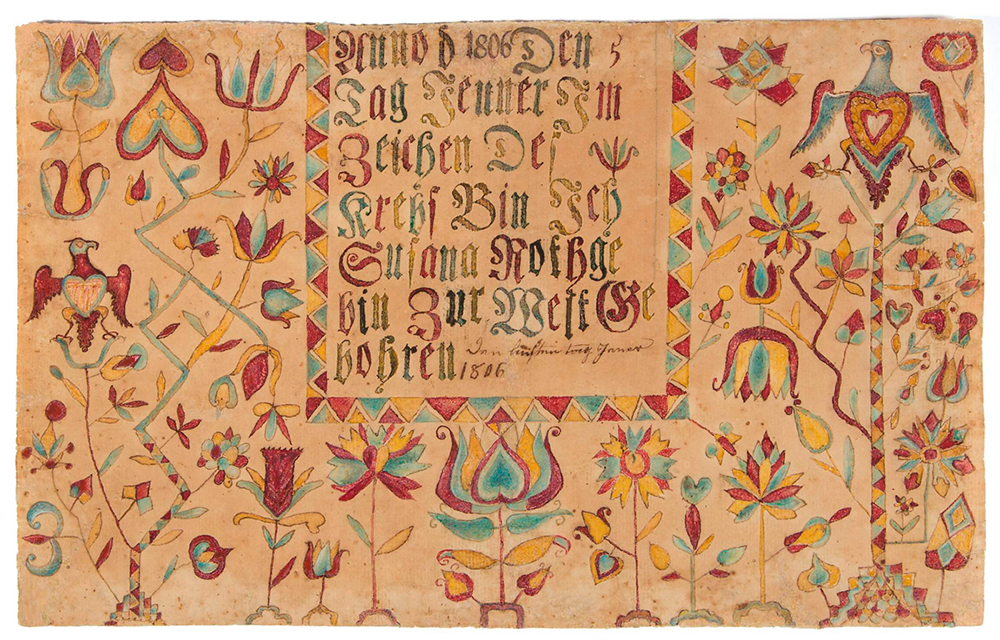 Anno d 1806 s Den 5
Tag Jenner Im
Zeichen Des
Krebs Bin Ich
Susana Rothge
bin Zur Welt Ge
bohren Den fünften tag Janer
1806